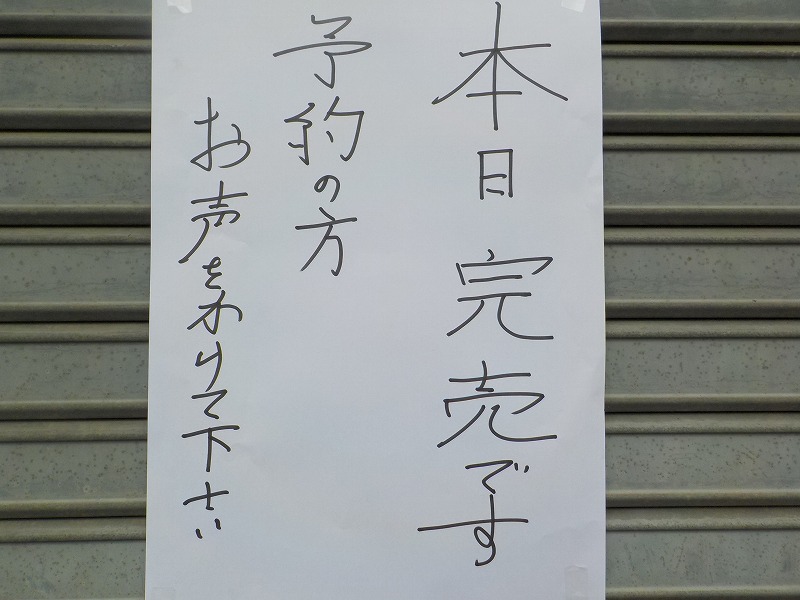 本日完売です
予約の方
お声をかけて下さい